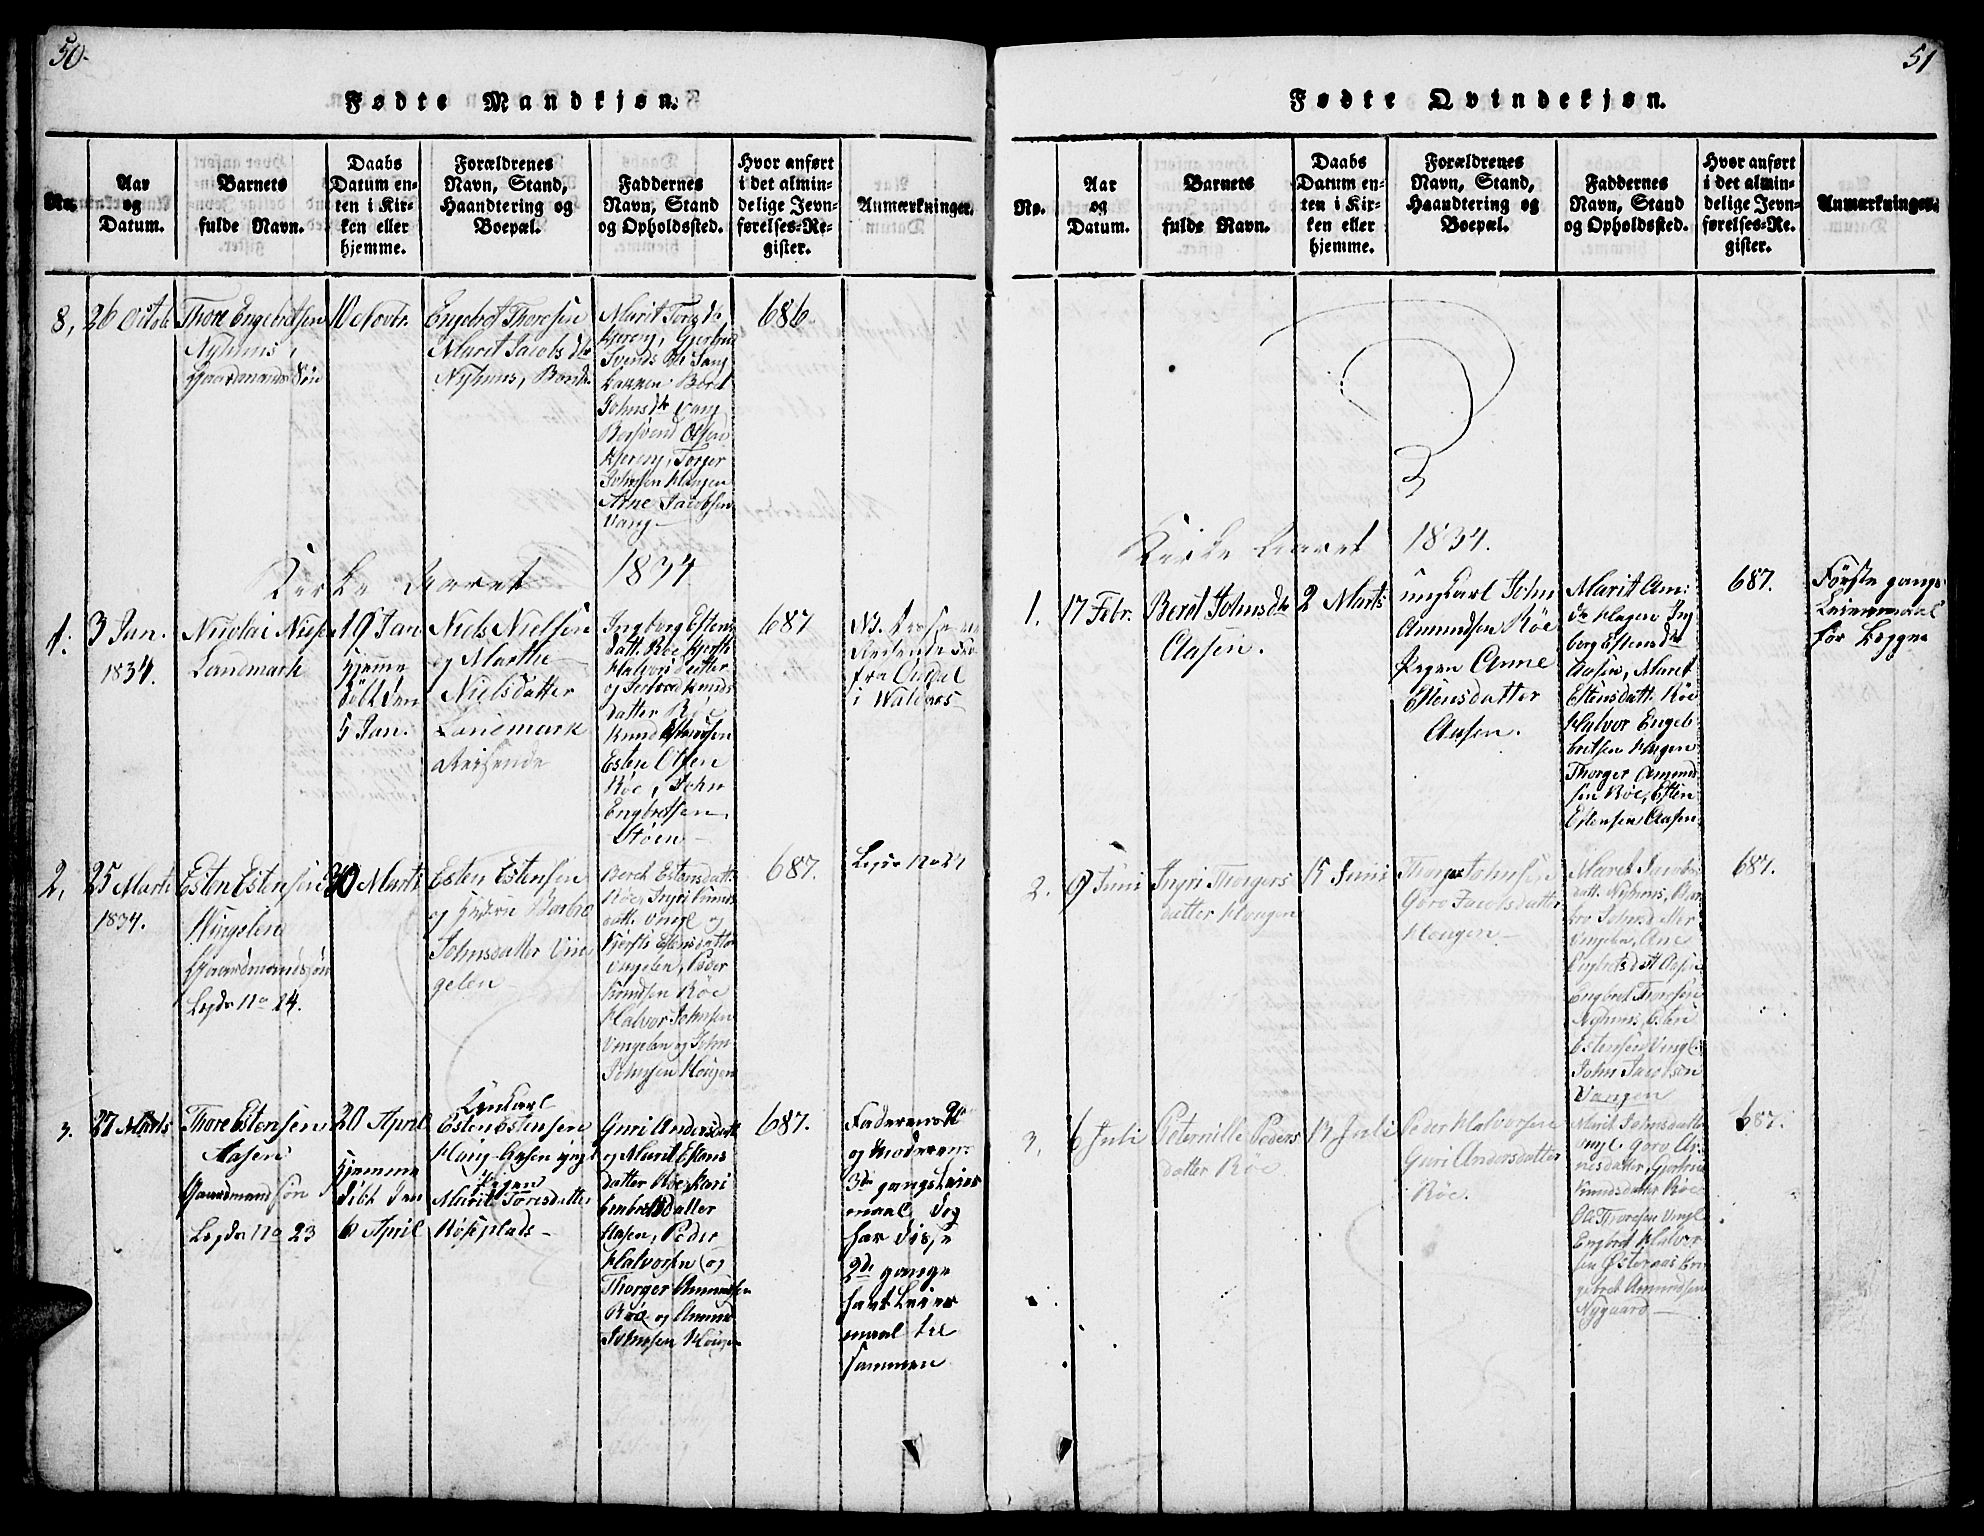 50.
Fødte Mandkjøn.
No.
Aar
og
Datum.
Barnets
fulde Navn.
Daabs
Datum en-
ten i Kir-
ken eller
hjemme.
Forældrenes
Navn, Stand,
Haandtering og
Boepæl.
Faddernes
Navn, Stand
og Opholdssted.
Hvor anført
i det almin-
delige Jevn-
førelses-Re-
gister.
Anmærkninger.
8,
26 Octob
Thore Engebretsen
Nyhuus,
Gaardmands Søn
10 Novbr.
Engebret Thoresen
Maret Jacobs dtr
Nyhuus, Bonde
Marit Torgdr
Gjertrud
Svends dtr
bakken Beret
Johns dtr Vang
Olsen
Torger
Johnsen Haugen
Arne Jacobsen
Vang
686
Kirke Aaret 1834
1.
3 Jan.
1834.
Nicolai Nielsen
Landmark
19 Jan
hjemme
døbt den
5 Jan.
Niels Nielsen
og Marthe
Nielsdatter
Landmark
Ingborg Estens
datt. Røe
Halvorsdatter
og Knuds
datter Røe
Knud
Esten Olsen
Røe, John
Engbretsen
Støen
687
NB.
fra
i Walders
2,
25 Marts
1834.
Esten Estensen
Vingelen
Gaardmandssøn
Legds No 24.
30 Marts
Esten Estensen
og Barbro
Johnsdatter Vin
gelen
Beret Estensdatt.
Røe, Ingri Knuds
datt. Vingl og
Kjersti Estensdatter
Vingelen, Peder
Knudsen Røe
Halvor Johnsen
Vingelen og John
Johnsen Hougen
687.
Legds No 24
3.
27 Marts
Thore Estensen
Aasen
Gaardmand søn
Legds No 23
20 April
hjemme
døbt den
6 April
Ungkarl
Esten Estensen
Aasen
Pigen
Marit Toresdatter
Røseplads
Guri Andersdatt
og Marit Estens
datter Røe, Kari
Embretsdatter
Aasen, Peder
Halvorsen og
Thorger Amundsen
Røe og Amund
Johnsen Hougen
687.
Faderens 2de
og Moderens
3die gangs Leier
maal, dog
har disse
2de gange
havt Leier
maal til
sammen
51
Fødte Qvindekjøn.
No.
Aar
og
Datum.
Barnets
fulde Navn.
Daabs
Datum en-
ten i Kir-
ken eller
hjemme.
Forældrenes
Navn, Stand,
Haandtering og
Boepæl.
Faddernes
Navn, Stand
og Opholdssted.
Hvor anført
i det almin-
delige Jevn-
førelses-Re-
gister.
Anmærkninger.
Kirke Aaret 1834.
1.
17 Febr.
Beret Johnsdtr
Aasen.
2 Marts
ungkarl John
Amundsen Røe
Pigen Anne
Estensdatter
Aasen.
Marit Am:
dtr Haugen Ing
borg Estensdtr
Aasen, Maret
Estensdatt. Røe
Halvor Engeb
bretsen Haugen
Thorger Amund
sen Røe, Esten
Estensen Aasen
687.
Første gangs
Leiermaal
for begge
2.
9 Juni
Ingri Thorgers
datter Hougen
15 Juni
Thorger Johnsen
Goro Jacobsdatter
Hougen
Maret Jacobs
datt. Nyhuus, Bar
bro Johnsd
Vingelen, Ane
Engbretsdatt Aasen
Engbret Thoresen
Nyhuus, Esten
Estensen Vingl:
John Jacobsen
Vangen
687.
3,
6 Juli
Peternille Peders
datter Røe
13 Juli
Peder Halvorsen
Guri Andersdatter
Røe.
Marit Johnsdatter
Vingl: Goro Ar
nesdatter, Gjertrud
Knudsdatter Røe
Ole Thoresen Vingl
Engbret Halvor
sen Østeraas En
gebret Amundsen
Nygaard
687.